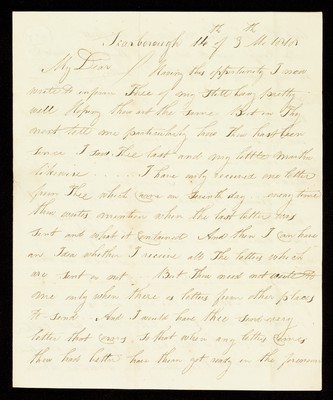 Scarborough 14th of 5th Mo 1818
My Dear / Having this opportunity I now
write to inform Thee of my State being pretty
well Hoping thou art the same But in Thy
next tell me particularly how Thou hast been
since I saw Thee last and my little
likewise I have only received one letter
from Thee which came on Seventh day every time
thou writes mention when the last letter was
sent and what it contained And then I can have
an Idea whether I receive all The letters which
are sent or not But Thou need not write to
me only when there is letters from other places
to send And I would have thee send every
letter that comes So that when any letter comes
thou had better have them get ready in the